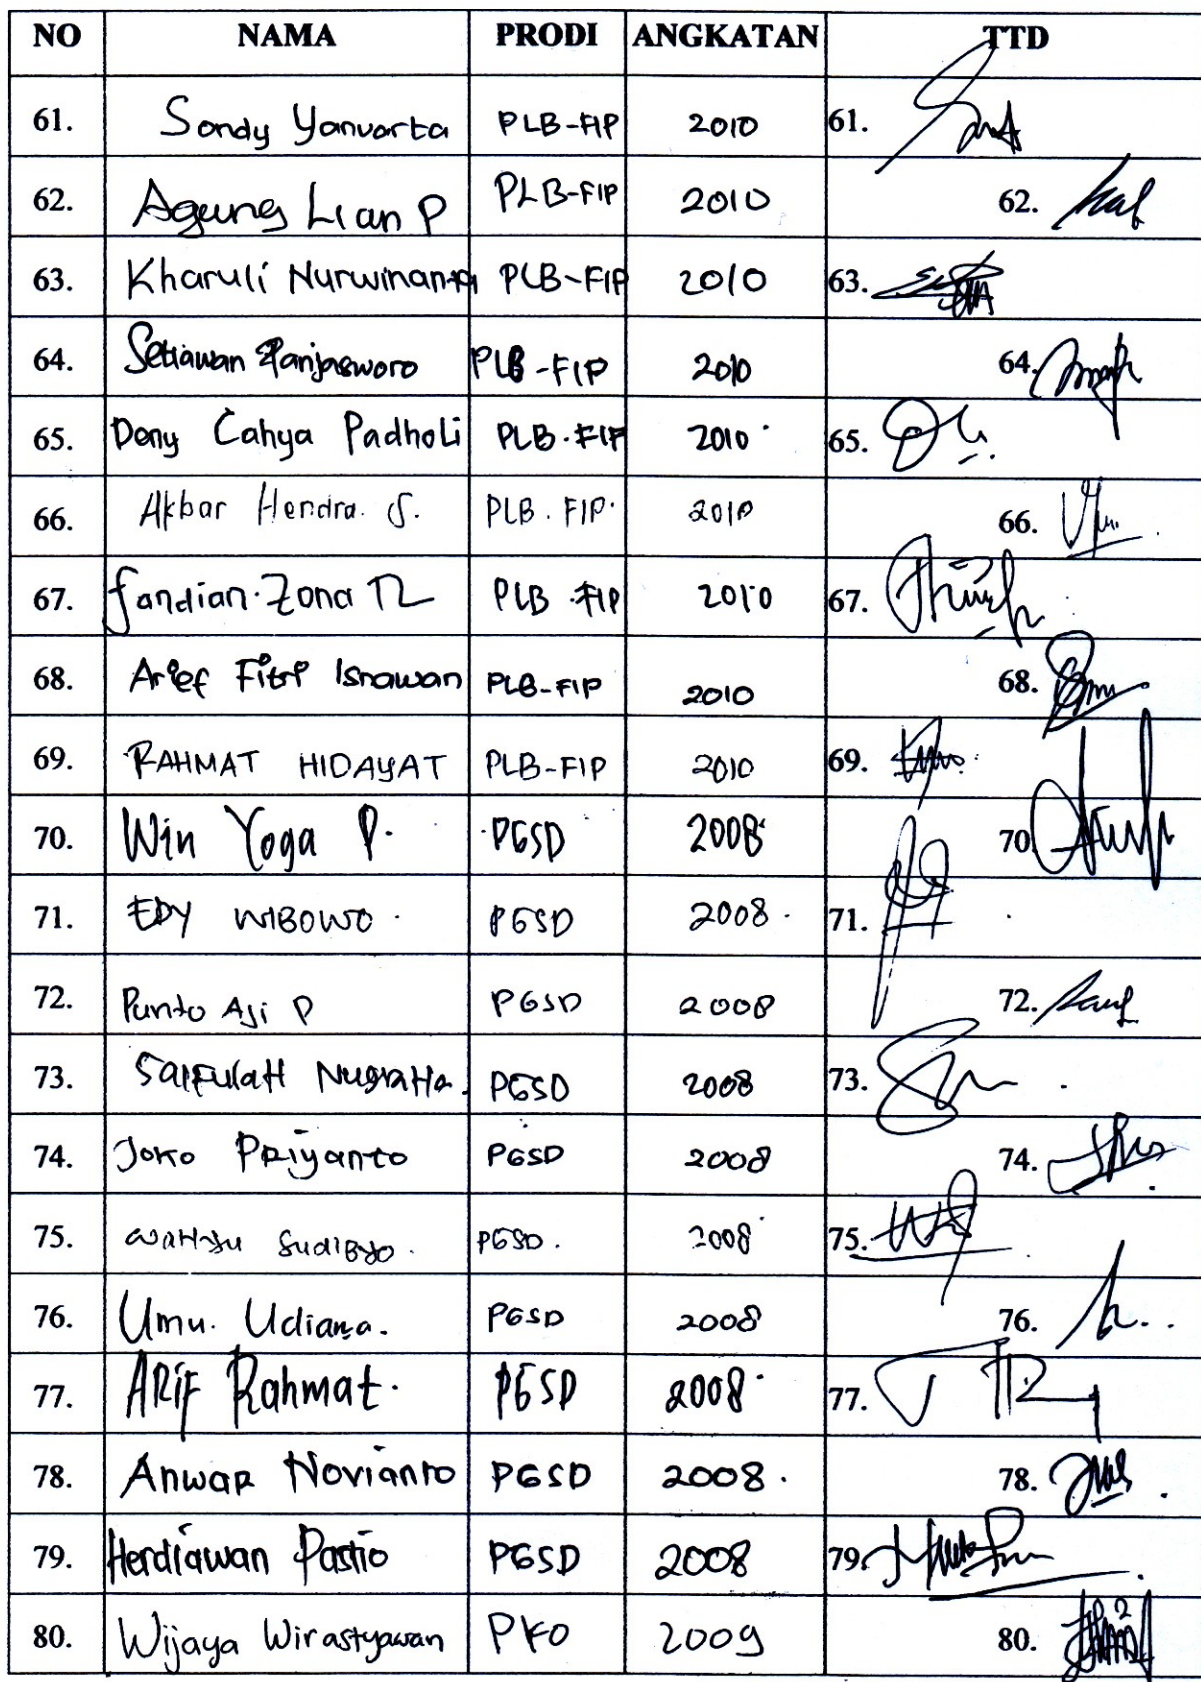 NO NAMA PRODI ANGKATAN TTD
61. Sondy Yanuarta PLB-FIP 2010 61.
62. Agung Lian P PLB-FIP 2010 62.
63. Kharuli Nurwinanta PLB-FIP 2010 63.
64. Setiawan Panjasworo PLB-FIP 2010 64.
65. Deny Cahya Padholi PLB.FIP 2010 65.
66. Akbar Hendra. S. PLB. FIP. 2010 66.
67. fandian. Zona PLB.FIP 2010 67.
68. Arief Fitri Isnawan PLB-FIP 2010 68.
69. RAHMAT HIDAYAT PLB-FIP 2010 69.
70. Win Yoga P. PGSD 2008 70.
71. EDY WIBOWO. PGSD 2008. 71.
72. Punto Aji P PGSD 2008 72.
73. Saifulah Nugraha. PGSD 2008 73.
74. Joko Priyanto PGSD 2008 74.
75. Wahyu Sudibyo. PGSD. 2008 75.
76. Umu. Udiana. PGSD 2008 76.
77. ARIF Rahmat. PGSD 2008. 77.
78. Anwar Novianto PGSD 2008. 78.
79. Herdiawan Pastio PGSD 2008 79.
80. Wijaya Wirastyawan PKO 2009 80.